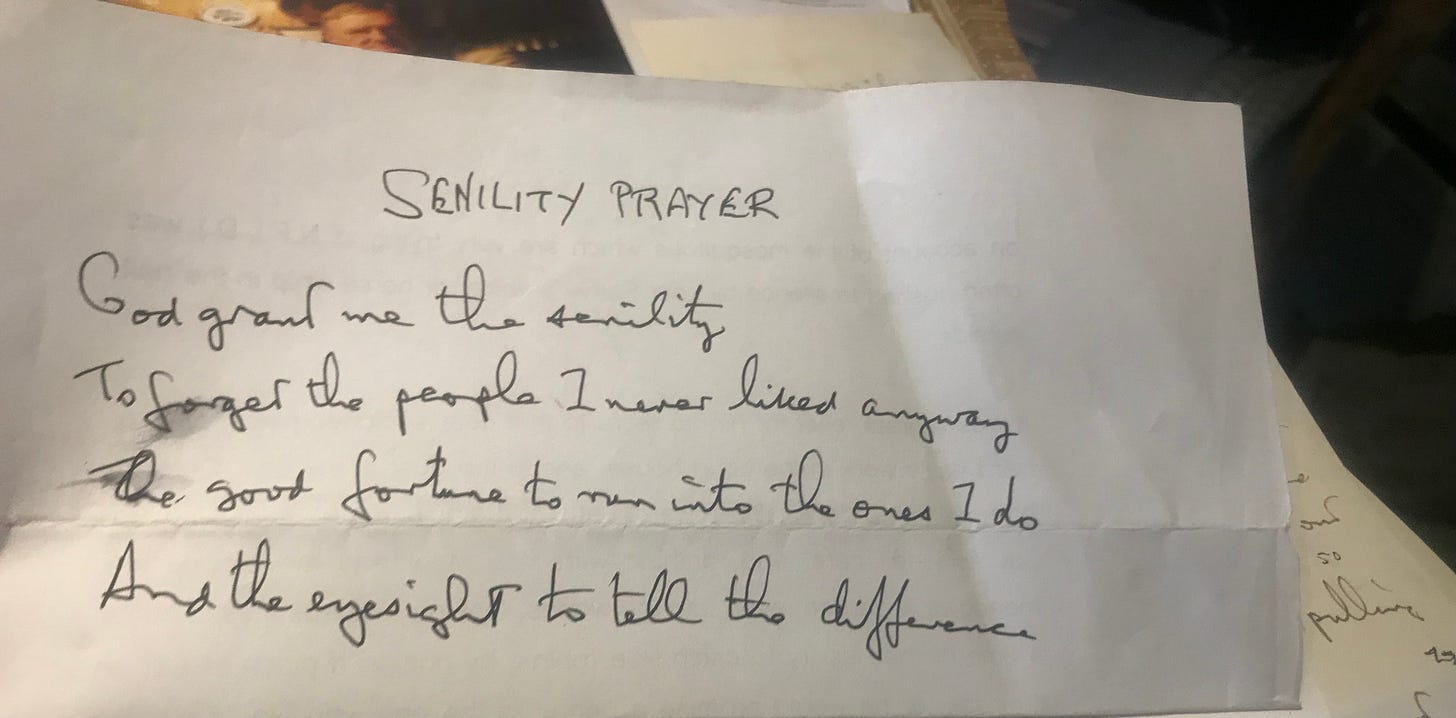 SENILITY PRAYER
God grant me the senility
To forget the people I never liked anyway
The good fortune to run into the ones I do
And the eyesight to tell the difference
out
so
pulling